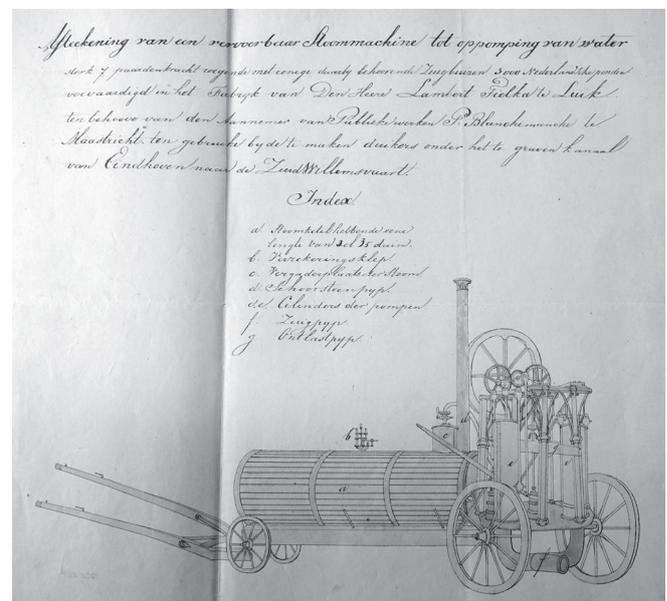 Afteekening van een vervoerbaar Stoommachine tot oppomping van water
sterk 7 paardenkracht wegende met eenige daarby behoorende Zuigbuizen 3000 Nederlandsche ponden
vervaardigd in het Fabryk van Den Heere Lambert te Luik
ten behoeve van den Aannemer van Publieke werken P. Blanchemanche te
Maastricht, ten gebruike by de te maken duikers onder het te graven kanaal
van Eindhoven naar de ZuidWillemsvaart.
Index
a Stoomketel hebbende eene
lengte van 2 el 35 duim.
b. Verzekeringsklep
c. Vergaderplaats der Stoom
d Schoorsteenpyp.
e.e. Cilinders der pompen
f. Zuigpyp.
g Ontlastpyp.
b
c
a
e
e